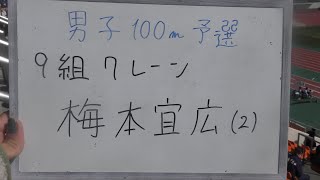 男子100m予選
9組7レーン
梅本宜広(2)